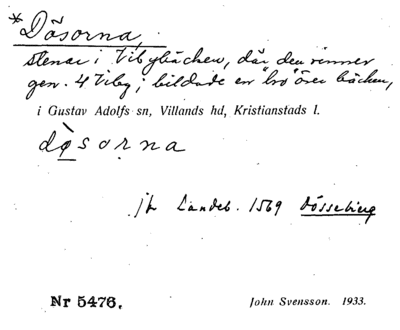 *Dösorna,
stenar i Vibybäcken, där den rinner
gen. 4 Viby; bildade en "bro" över bäcken,
i Gustav Adolfs sn, Villands hd, Kristianstads l.
dö̀sorna
jfr Landeb. 1569 Dösseberg
Nr 5476.
John Svensson. 1933.